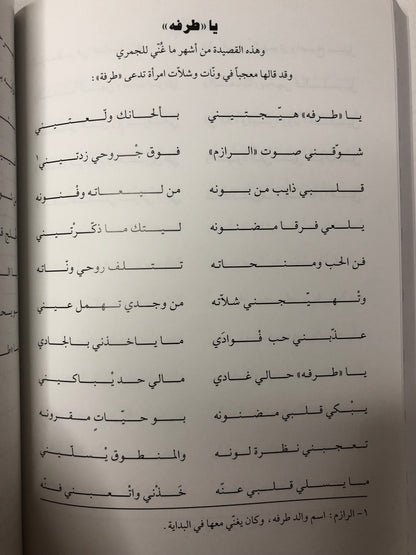 يا «طرفه»
وهذه القصيدة من أشهر ما غُنّي للجمري
وقد قالها معجباً في ونّات وشلّات امرأة تدعى «طرفة»:
يا «طرفه» هيّجتيني بألحانك ولّعتيني
شوّقني صوت «الرازم» فوق جْروحي زدتيني١
قلبي ذايب من بونه من ليعاته وفْنونه
يلعي فرقا مضنونه ليتك ما ذكّرْتيني
فن الحب ومنحاته تتلف روحي ونّاته
وتْهيّجني شلاّته من وجدي تهمل عيني
عذّبني حب فْوادي ما ياخذني بالجادي
يا «طرفه» حالي غادي مالي حد يْباكيني
يبْكي قلبي مضنونه بو حيّاتٍ مقرونه
تعجبني نظرة لونه والمنطوق يْسلّيني
ما يسلي قلبي عنّه خَذْني واتْعبني فنّه
١- الرازم: اسم والد طرفه، وكان يغنّي معها في البداية.